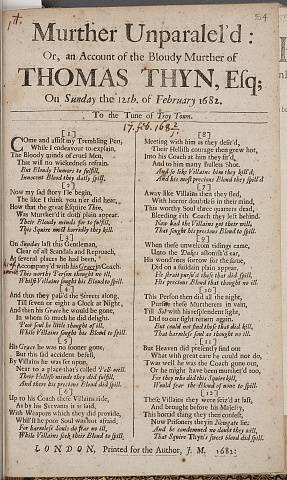 54
Murther Unparalel'd:
Or, an Account of the Bloody Murther of
THOMAS THYN, Esq;
On Sunday the 12th. of February 1682.
To the Tune of Troy Town.
17. feb. 168½
[1]
COme and assist my Trembling Pen,
While I endeavour to explain,
The Bloody minds of cruel Men,
This will no wickedness refrain.
But Bloody Humors to fulfill,
Innocent Blood they daily spill.
[2]
Now my sad story I'le begin,
The like I think you n'er did hear,
How that the great Esquire Thin,
Was Murther'd it doth plain appear.
Their Bloody minds for to fulfill,
This Squire most horridly they kill.
[3]
On Sunday last this Gentleman,
Clear of all Scandals and Reproach,
At several places he had been,
Accompany'd with his Grace in Coach.
This worthy Person thought no ill,
Whilst Villains sought his Blood to spill.
[4]
And thus they past the Streets along,
Till seven or eight a Clock at Night,
And then his Grace he would be gone,
In whom so much he did delight.
Poor soul he little thought of ill,
While Villains sought his Blood to spill.
[5]
His Grace he was no sooner gone,
But this sad accident befell,
By Villains he was set upon,
Near to a place that's called Pall-mall.
Their Hellish minds they did fulfill,
And there his precious Blood did spill.
[6]
Up to his Coach these Villains ride,
As by his Servants it is said,
With Weapons which they did provide,
Whilst he poor Soul was not afraid,
For harmless Souls do fear no ill,
While Villains seek their Blood to spill.
[8]
Meeting with him as they desir'd,
Their Hellish courage then grew hot,
Into his Coach at him they fir'd,
And to him many Bullets Shot.
And so like Villains him they kill'd,
And his most precious Blood they spill'd
[7]
Away like Villains then they fled,
With horror doubtless in their mind,
This worthy Soul three quarters dead,
Bleeding i'th Coach they left behind.
Now had the Villains got their will,
That sought his precious Blood to spill.
[9]
When these unwelcom tidings came,
Unto the Dukes adonish'd ear,
His wond'rous sorrow for the same,
Did on a sudden plain appear.
He griev'd to see what they did spill,
His precious Blood that thought no ill.
[10]
This Person then did all the night,
Pursue these Murtherers in vain,
Till Sol with his resplendent light,
Did to our sight return again.
But could not find those that did kill,
That harmless soul as thought no ill.
[11]
But Heaven did presently find out
What with great care he could not do,
Twas well he was the Coach gone out,
Or he might have been murther'd too,
For they who did this Squire kill,
Would spare the Blood of none to spill.
[12]
These Villains they were seiz'd at last,
And brought before his Majesty,
This horrid thing they then confest;
Now Prisoners they in Newgate lie.
And be condemned no doubt they will,
That Squire Thyn's sweet blood did spill.
LONDON, Printed for the Author, J. M. 1682.